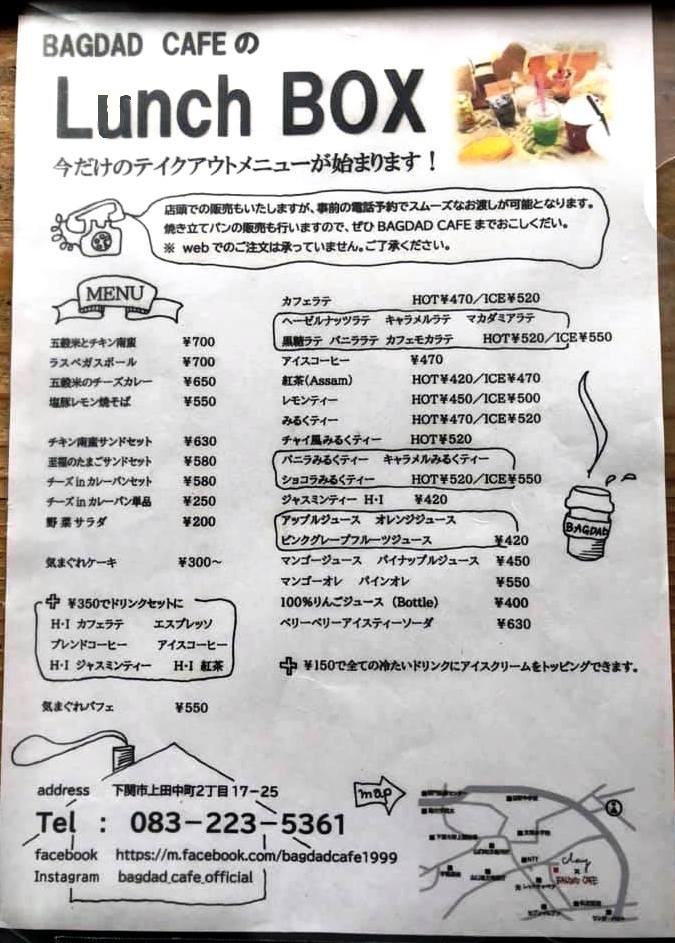 BAGDAD CAFEの
Lunch BOX
今だけのテイクアウトメニューが始まります！
店頭での販売もいたしますが、事前の電話予約でスムーズなお渡しが可能となります。
焼き立てパンの販売も行いますので、ぜひBAGDAD CAFEまでおこしくだい。
※ webでのご注文は承っていません。ご了承ください。
MENU
五穀米とチキン南蛮 ¥700
ラスベガスボール ¥700
五穀米のチーズカレー ¥650
塩豚レモン焼そば ¥550
チキン南蛮サンドセット ¥630
至福のたまごサンドセット ¥580
チーズinカレーパンセット ¥580
チーズinカレーパン単品 ¥250
野菜サラダ ¥200
気まぐれケーキ ¥300〜
¥350でドリンクセットに
H・I カフェラテ エスプレッソ
ブレンドコーヒー アイスコーヒー
H・I ジャスミンティー H・I 紅茶
気まぐれパフェ ¥550
カフェラテ HOT¥470／ICE¥520
ヘーゼルナッツラテ キャラメルラテ マカダミアラテ
黒糖ラテ バニララテ カフェモカラテ HOT¥520／ICE¥550
アイスコーヒー ¥470
紅茶（Assam） HOT¥420／ICE¥470
レモンティー HOT¥450／ICE¥500
みるくティー HOT¥470／ICE¥520
チャイ風みるくティー HOT¥520
バニラみるくティー キャラメルみるくティー
ショコラみるくティー HOT¥520／ICE¥550
ジャスミンティー H・I ¥420
アップルジュース オレンジジュース
ピンクグレープフルーツジュース ¥420
マンゴージュース パイナップルジュース ¥450
マンゴーオレ パインオレ ¥550
100％りんごジュース （Bottle） ¥400
ベリーベリーアイスティーソーダ ¥630
¥150で全ての冷たいドリンクにアイスクリームをトッピングできます。
BAGDAD
address 下関市上田中町2丁目17−25
Tel ： 083−223−5361
facebook https://m.facebook.com/bagdadcafe1999
Instagram bagdad_cafe_official
map
NTT
clay
BAGDAD CAFE